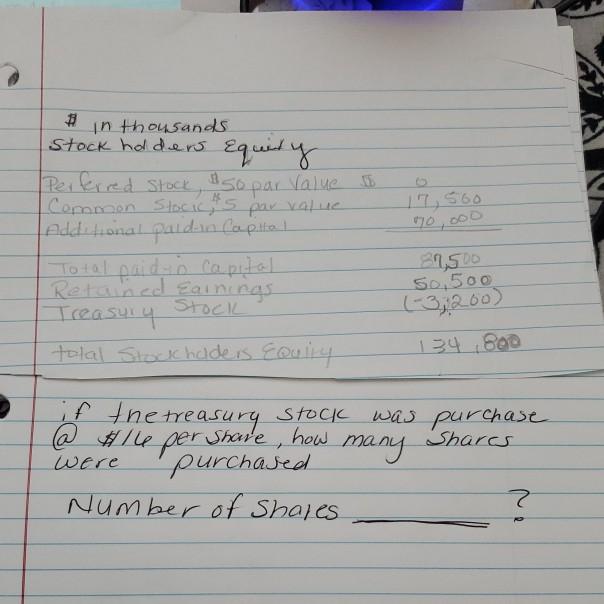 $ in thousands
Stock holders Equity
Perferred Stock, $50 par Value $ 0
Common Stock, $5 par value 17,500
Additional paid-in Capital 70,000
Total paid-in Capital 87,500
Retained Earnings 50,500
Treasury Stock (-3,200)
total Stockholders Equity 134,800
if the treasury stock was purchase
@ $16 per share, how many Shares
were purchased
Number of Shares ______ ?